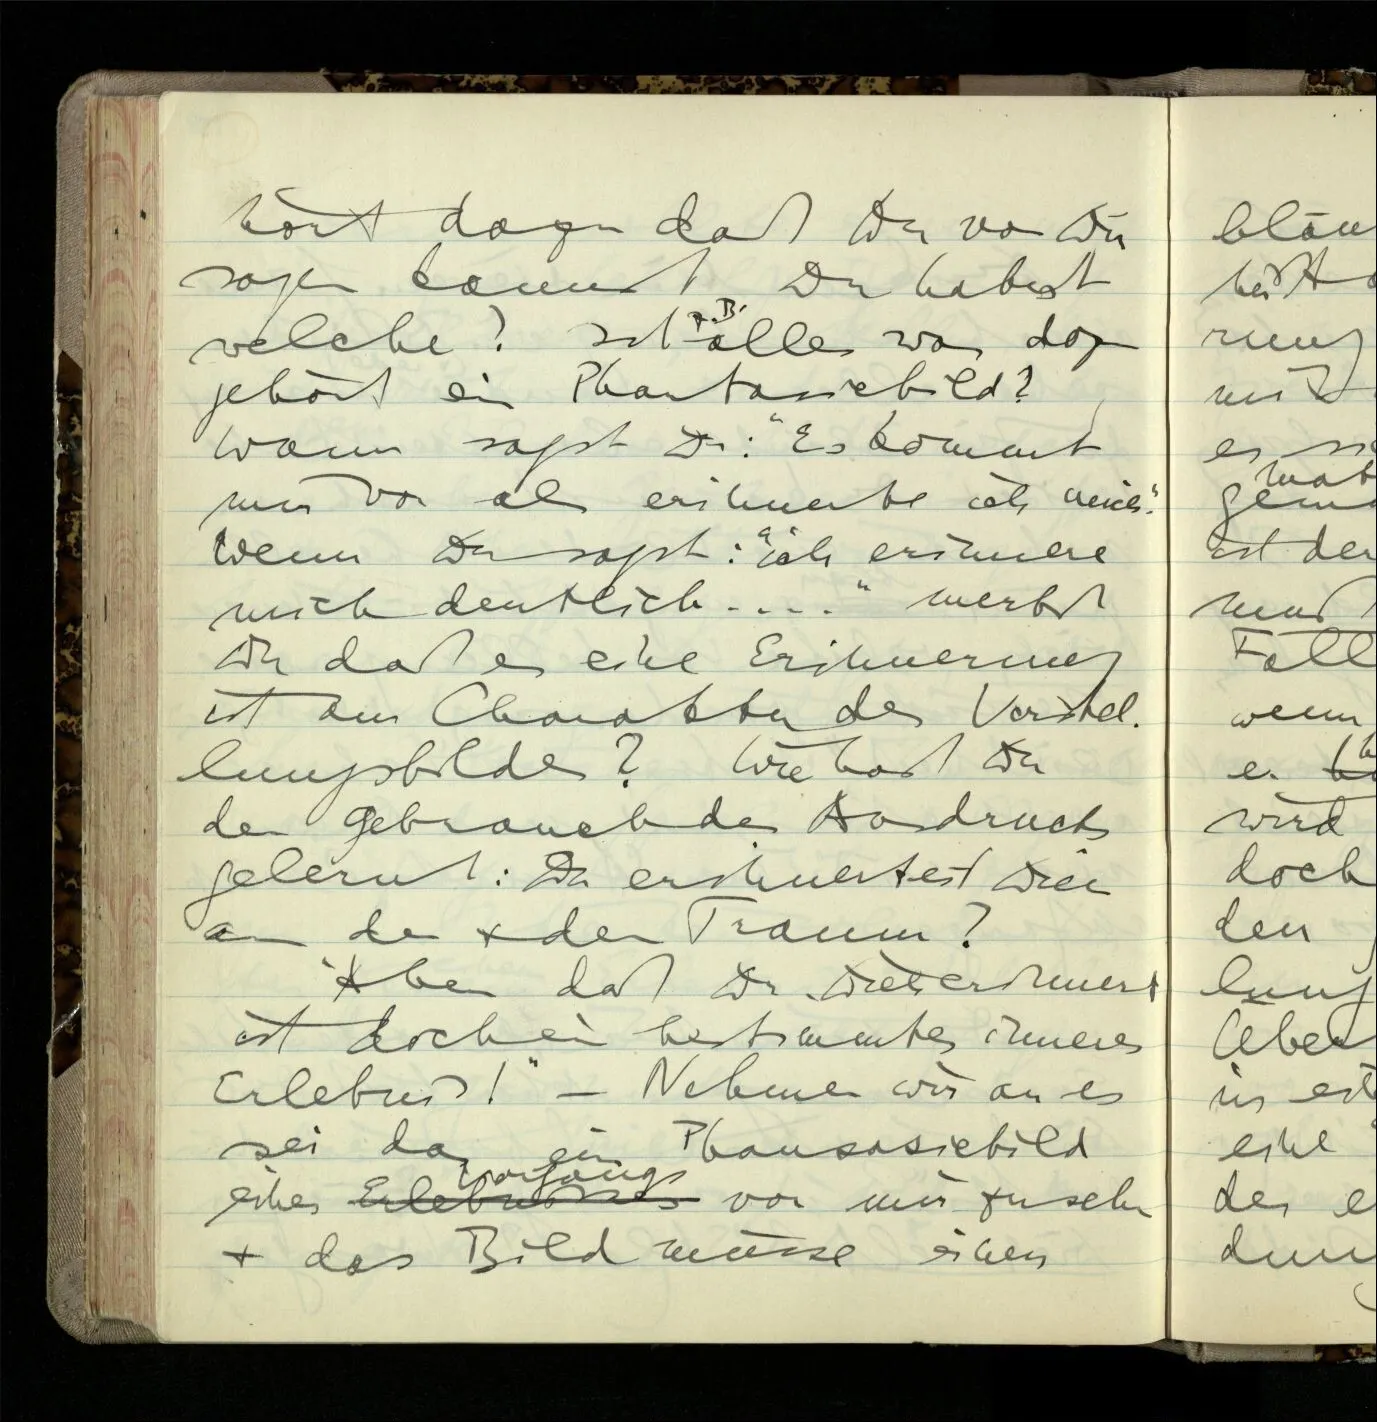 hört dazu daß Du von Dir
sagen kannst Du habest
z.B.
welche? Ist alles was dazu
gehört ein Phantasiebild?
Wann sagst Du: "Es kommt
mir vor als erinnerte ich mich".
Wenn Du sagst: "ich erinnere
mich deutlich ...." merkst
Du daß es eine Erinnerung
ist am Charakter des Vorstel-
lungsbildes? Wie hast Du
den Gebrauch des Ausdrucks
gelernt: Du erinnertest Dich
an den + den Traum?
"Aber daß Du Dich erinnerst
ist doch ein bestimmtes inneres
Erlebnis!" – Nehmen wir an es
sei das ein Phantasiebild
Vorgangs
eines Erlebnisses vor mir zu sehen
+ das Bild müsse einen
es
ist der
Fall
wenn
wird
doch
den
eine